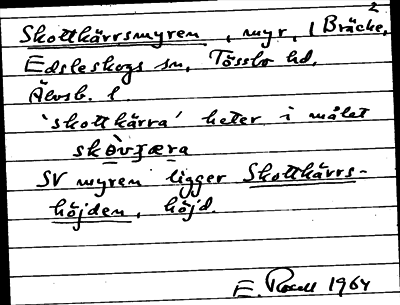 Skottkärrsmyren, myr, 1 Bräcke, 2
Edsleskogs sn, Tössbo hd,
Älvsb. l
'skottkärra' heter i målet
skòvʒæra
SV myren ligger Skottkärrs-
höjden, höjd.
E. 1964